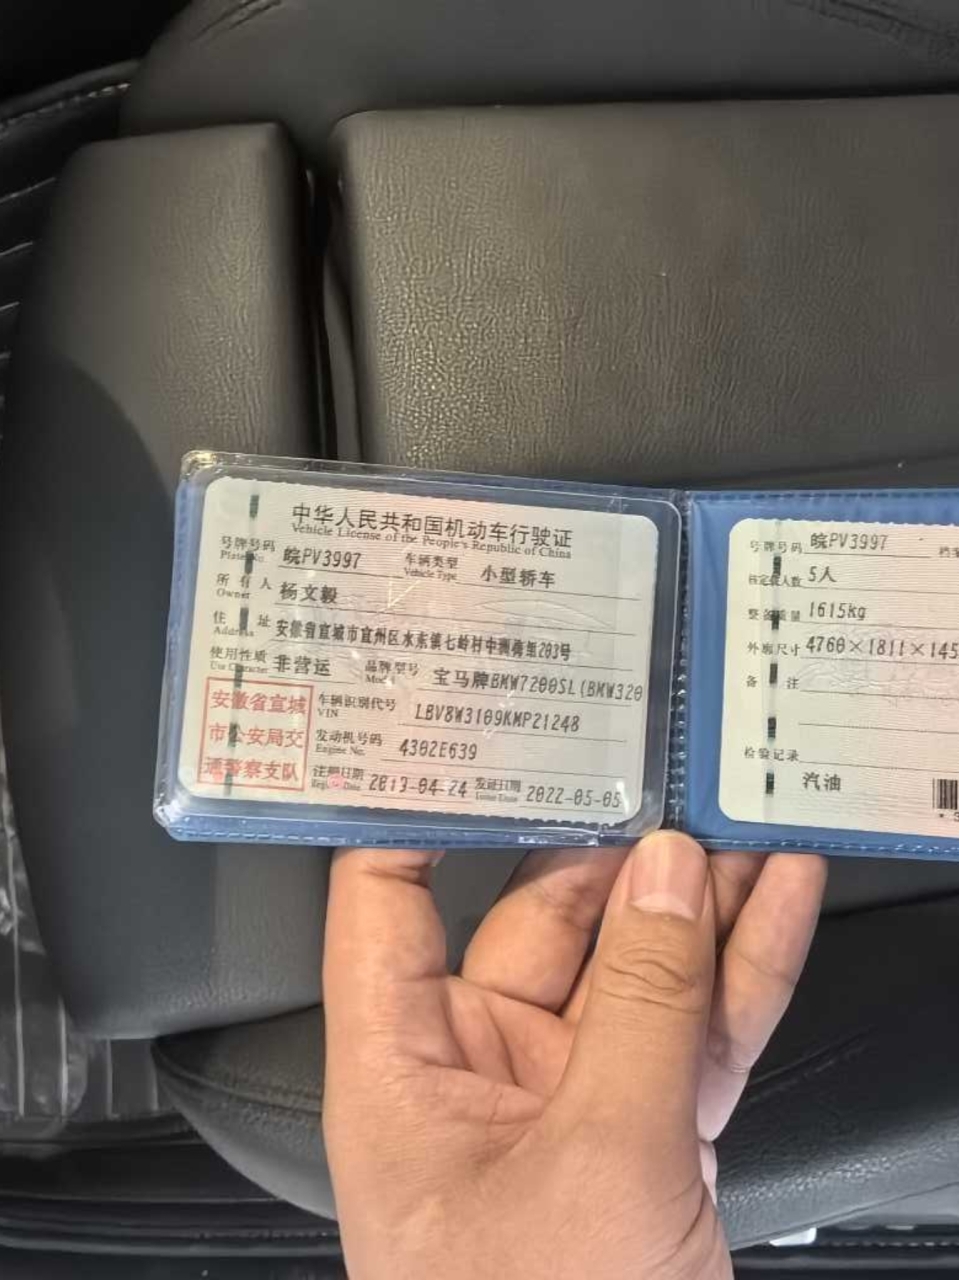 中华人民共和国机动车行驶证
Vehicle License of the People's Republic of China
号牌号码 皖PV3997 车辆类型 小型轿车
Plate No. Vehicle Type
所有人 杨文毅
Owner
住址 安徽省宣城市宣州区水东镇七岭村中洲湾组203号
Address
使用性质 非营运 品牌型号 宝马牌BMW7200SL(BMW320
Use Character Model
安徽省宣城
市公安局交
通警察支队
车辆识别代号 LBV8W3109KMP21248
VIN
发动机号码 4302E639
Engine No.
注册日期 2019-04-24 发证日期 2022-05-05
Register Date Issue Date
号牌号码 皖PV3997 档
核定载人数 5人
整备质量 1615kg
外廓尺寸 4760×1811×145
备注
检验记录
汽油